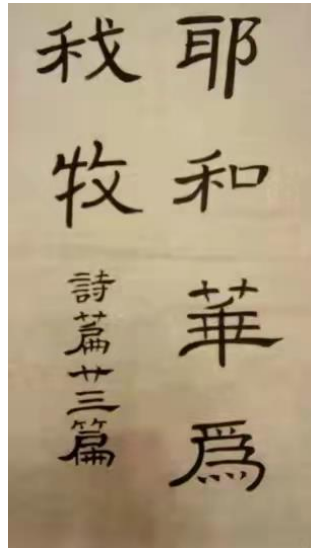 耶和華為
我牧
詩篇廿三篇